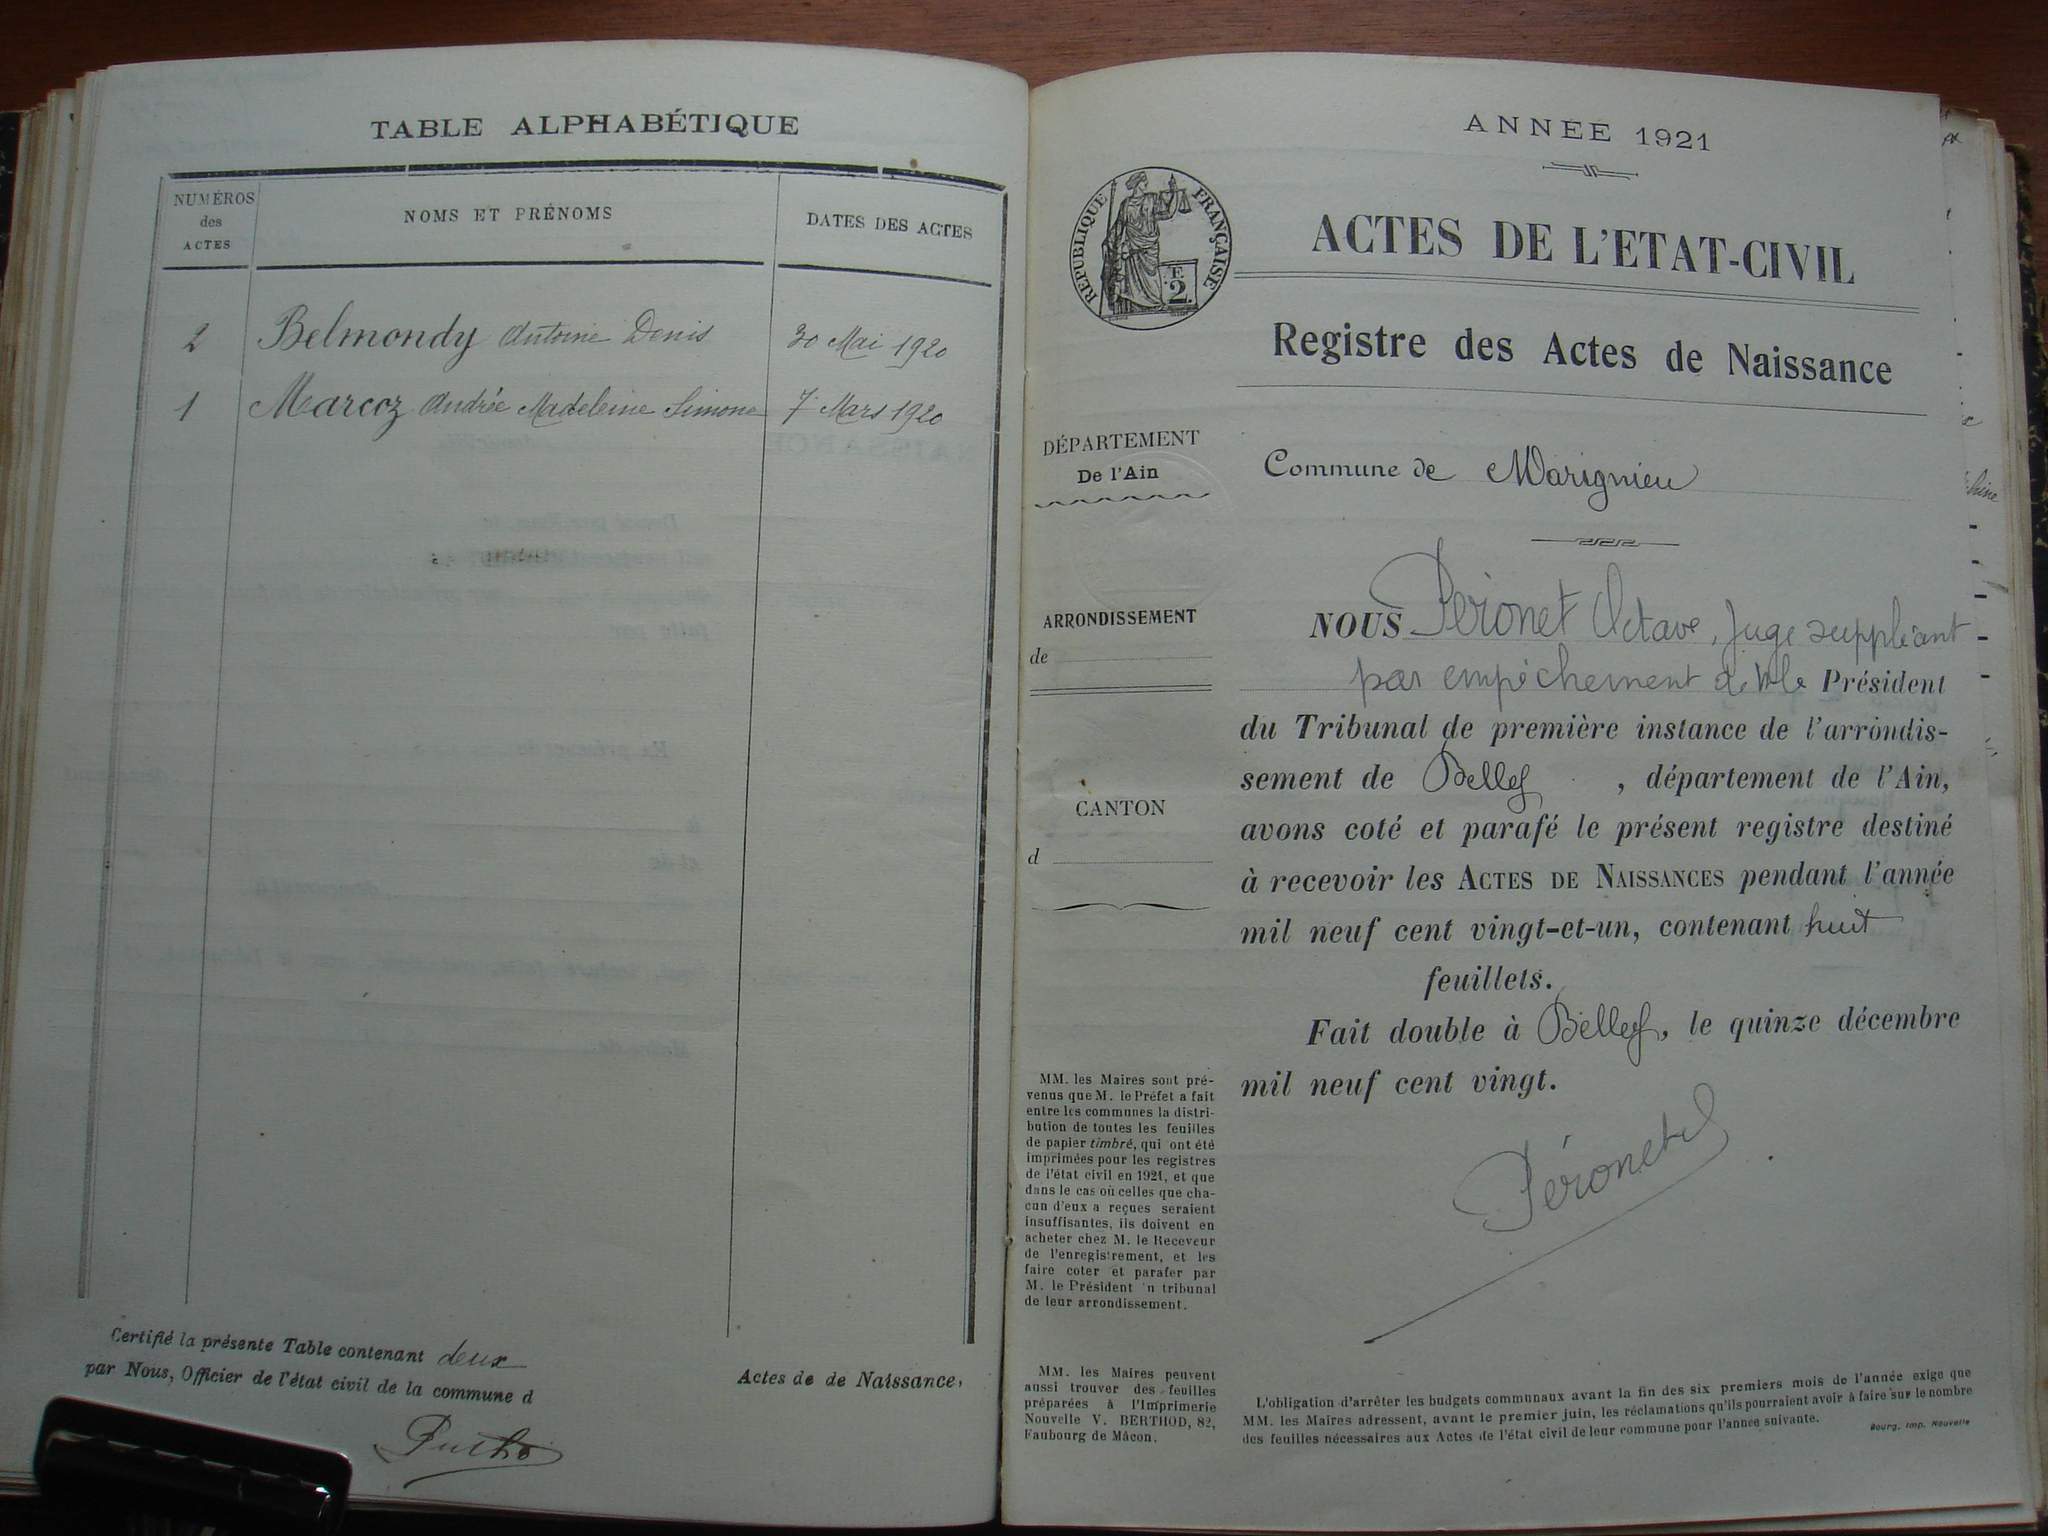 TABLE ALPHABÉTIQUE
NUMÉROS
des
ACTES
NOMS ET PRÉNOMS
DATES DES ACTES
2 Belmondy Antoine Denis 30 Mai 1920
1 Marcoz Andrée Madeleine Simone 7 Mars 1920
Certifié la présente Table contenant deux Actes de de Naissance,
par Nous, Officier de l'état civil de la commune d
ANNÉE 1921
RÉPUBLIQUE FRANÇAISE
F.
2
ACTES DE L'ETAT-CIVIL
Registre des Actes de Naissance
DÉPARTEMENT
De l'Ain
Commune de Marignieu
ARRONDISSEMENT
de
CANTON
d
NOUS Péronet Octave, Juge suppléant
par empêchement de Président
du Tribunal de première instance de l'arrondis-
sement de Belley, département de l'Ain,
avons coté et parafé le présent registre destiné
à recevoir les ACTES DE NAISSANCES pendant l'année
mil neuf cent vingt-et-un, contenant huit
feuillets.
Fait double à Belley, le quinze décembre
mil neuf cent vingt.
Péronet
MM. les Maires sont pré-
venus que M. le Préfet a fait
entre les communes la distri-
bution de toutes les feuilles
de papier timbré, qui ont été
imprimées pour les registres
de l'état civil en 1921, et que
dans le cas où celles que cha-
cun d'eux a reçues seraient
insuffisantes, ils doivent en
acheter chez M. le Receveur
de l'enregistrement, et les
faire coter et parafer par
M. le Président 'n tribunal
de leur arrondissement.
MM. les Maires peuvent
aussi trouver des feuilles
préparées à l'Imprimerie
Nouvelle V. BERTHOD, 82,
Faubourg de Mâcon.
L'obligation d'arrêter les budgets communaux avant la fin des six premiers mois de l'année exige que
MM. les Maires adressent, avant le premier juin, les réclamations qu'ils pourraient avoir à faire sur le nombre
des feuilles nécessaires aux Actes de l'état civil de leur commune pour l'année suivante.
Bourg, Imp. Nouvelle